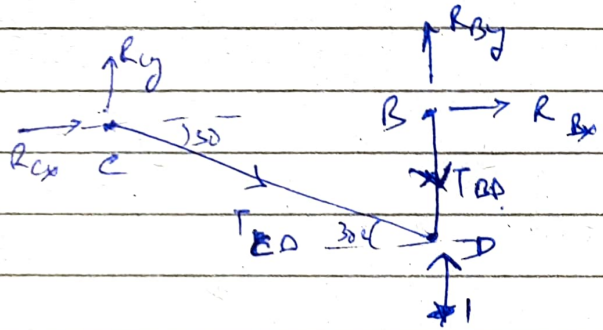 R_By
R_Cy
B
R_Bx
30
R_Cx
C
T_BD
T_CD
30
D
1